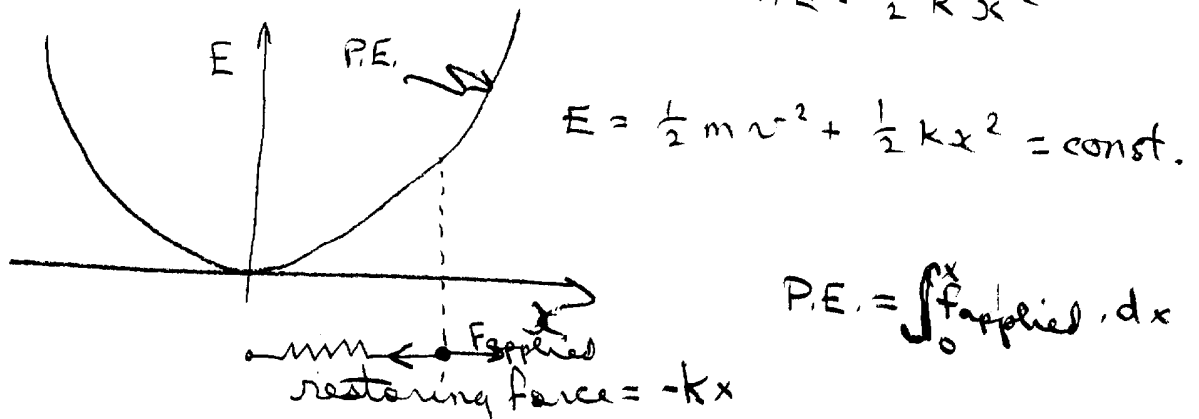 P.E. = 1/2 k x²
E
P.E.
E = 1/2 m v² + 1/2 k x² = const.
x
P.E. = ∫₀ˣ Fapplied . dx
Fapplied
restoring force = -kx